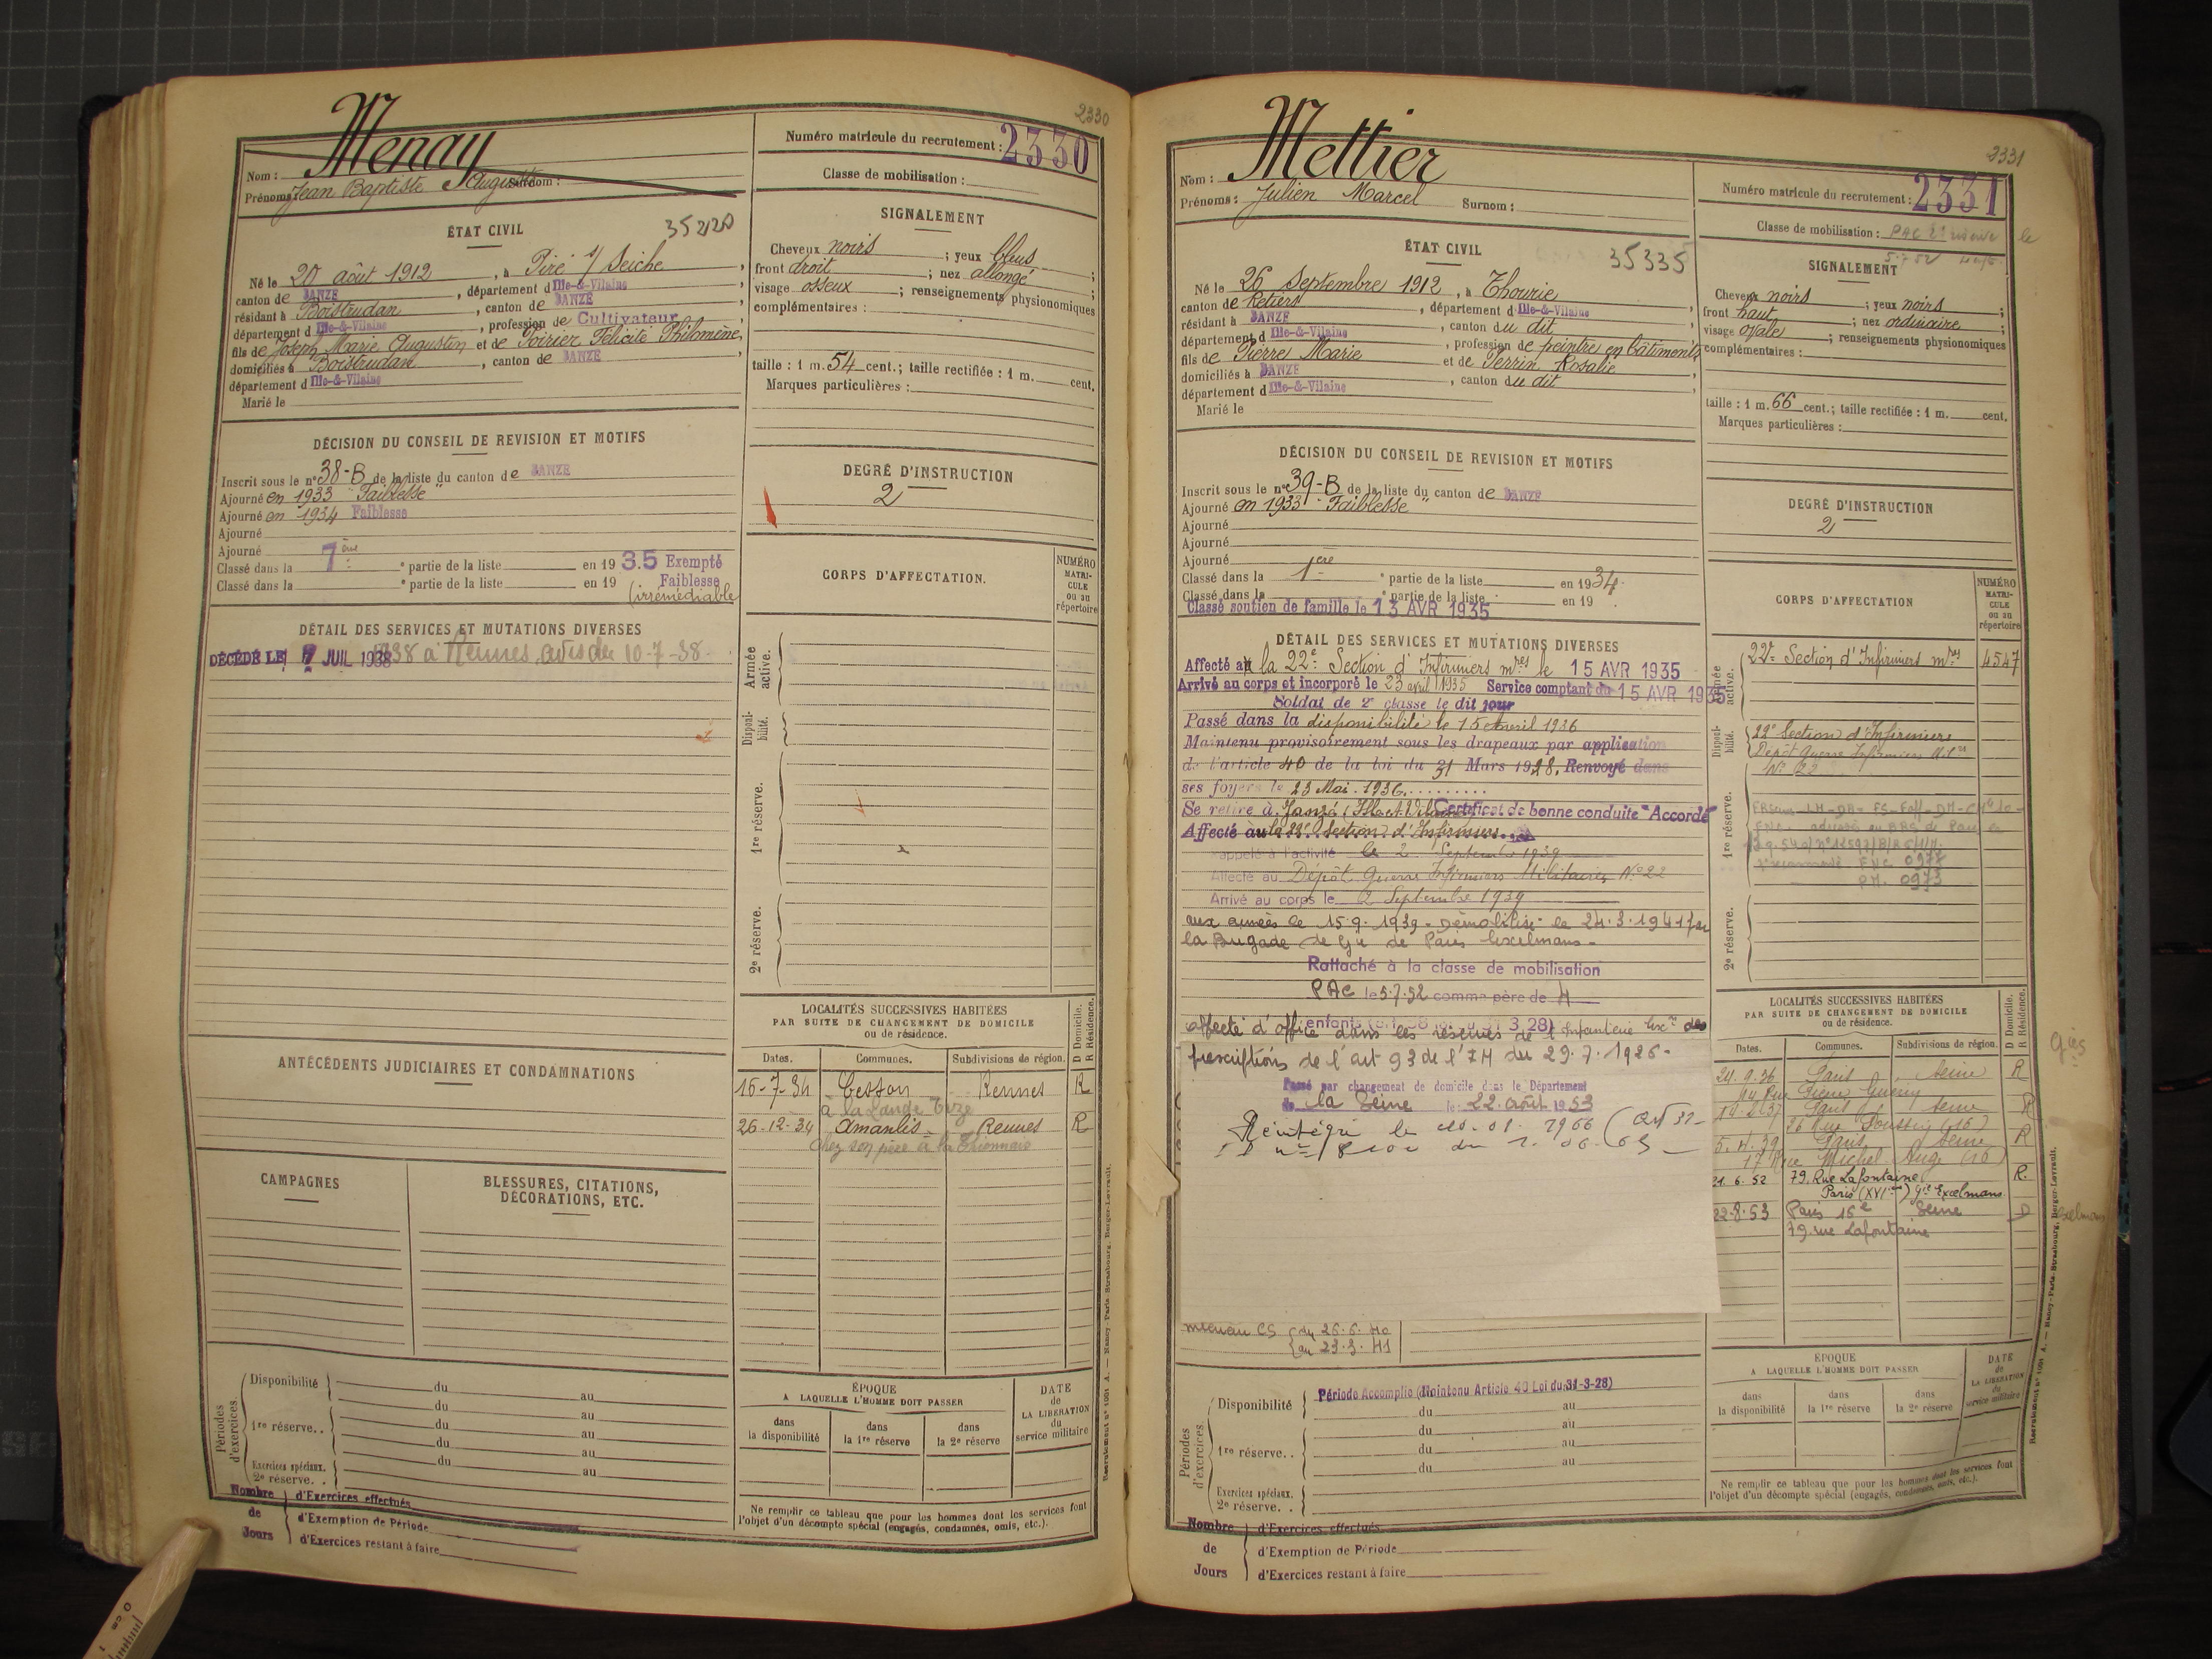 2330
Menay
Nom :
Prénoms : Jean Baptiste Auguste Surnom :
Numéro matricule du recrutement : 2330
Classe de mobilisation :
ÉTAT CIVIL
Né le 20 août 1912, à Piré s/ Seiche,
canton de JANZE, département d Ille-&-Vilaine
résidant à Boistrudan, canton de JANZE
département d Ille-&-Vilaine, profession de Cultivateur,
fils de Joseph Marie Augustin et de Poirier Félicité Philomène,
domiciliés à Boistrudan, canton de JANZE,
département d Ille-&-Vilaine
Marié le
SIGNALEMENT
Cheveux noirs ; yeux bleus ;
front droit ; nez allongé ;
visage osseux ; renseignements physionomiques
complémentaires :
taille : 1 m. 54 cent.; taille rectifiée : 1 m. cent.
Marques particulières :
DÉCISION DU CONSEIL DE REVISION ET MOTIFS
Inscrit sous le n° 38-B de la liste du canton de JANZE
Ajourné en 1933 "Faiblesse"
Ajourné en 1934 Faiblesse
Ajourné
Ajourné
Classé dans la 7ème ° partie de la liste en 19 35 Exempté
Classé dans la ° partie de la liste en 19 Faiblesse
(irrémédiable
DEGRÉ D'INSTRUCTION
2
CORPS D'AFFECTATION.
NUMÉRO MATRI- CULE ou au répertoire
DÉTAIL DES SERVICES ET MUTATIONS DIVERSES
DÉCÉDÉ LE 7 JUIL 1938 à Rennes avis du 10-7-38
Armée active.
Disponi- bilité.
1re réserve.
2e réserve.
ANTÉCÉDENTS JUDICIAIRES ET CONDAMNATIONS
CAMPAGNES
BLESSURES, CITATIONS, DÉCORATIONS, ETC.
LOCALITÉS SUCCESSIVES HABITÉES
PAR SUITE DE CHANGEMENT DE DOMICILE
ou de résidence.
D Domicile. R Résidence.
Dates. Communes. Subdivisions de région.
16-7-34 Cesson Rennes R
à la Lande
26-12-34 Amanlis Rennes R
chez son père à la
Périodes d'exercices.
Disponibilité du au
du au
1re réserve. . du au
du au
Exercices spéciaux. du au
2e réserve. .
ÉPOQUE
A LAQUELLE L'HOMME DOIT PASSER
dans la disponibilité
dans la 1re réserve
dans la 2e réserve
DATE de LA LIBERATION du service militaire
Nombre de Jours
d'Exercices effectués
d'Exemption de Période
d'Exercices restant à faire
Ne remplir ce tableau que pour les hommes dont les services font
l'objet d'un décompte spécial (engagés, condamnés, omis, etc.).
2331
Mettier
Nom :
Prénoms : Julien Marcel Surnom :
Numéro matricule du recrutement : 2331
Classe de mobilisation : PAC 2e réserve le
5-7-52
ÉTAT CIVIL
35335
Né le 26 Septembre 1912, à Thourie,
canton de Retiers, département d Ille-&-Vilaine
résidant à JANZE, canton du dit
département d Ille-&-Vilaine, profession de peintre en bâtiments
fils de Pierre Marie et de Perrin Rosalie,
domiciliés à JANZE, canton du dit,
département d Ille-&-Vilaine
Marié le
SIGNALEMENT
Cheveux noirs ; yeux noirs ;
front haut ; nez ordinaire ;
visage ovale ; renseignements physionomiques
complémentaires :
taille : 1 m. 66 cent.; taille rectifiée : 1 m. cent.
Marques particulières :
DÉCISION DU CONSEIL DE REVISION ET MOTIFS
Inscrit sous le n° 39-B de la liste du canton de JANZE
Ajourné en 1933 "Faiblesse"
Ajourné
Ajourné
Ajourné
Classé dans la 1ère ° partie de la liste en 1934
Classé dans la ° partie de la liste en 19
Classé soutien de famille le 13 AVR 1935
DEGRÉ D'INSTRUCTION
2
CORPS D'AFFECTATION
NUMÉRO MATRI- CULE ou au répertoire
DÉTAIL DES SERVICES ET MUTATIONS DIVERSES
Affecté à la 22e Section d'Infirmiers mres le 15 AVR 1935
Arrivé au corps et incorporé le 23 avril 1935 Service comptant du 15 AVR 1935
Soldat de 2e classe le dit jour
Passé dans la disponibilité le 15 Avril 1936
Maintenu provisoirement sous les drapeaux par application
de l'article 40 de la loi du 31 Mars 1928. Renvoyé dans
ses foyers le 23 Mai 1936.
Se retire à Janzé (Ille et Vilaine) Certificat de bonne conduite "Accordé"
Affecté à la 22e Section d'Infirmiers
Rappelé à l'activité le 2 Septembre 1939
Affecté au Dépôt Guerre Infirmiers Militaires N° 22
Arrivé au corps le 2 Septembre 1939
aux armées le 15.9.1939 - Démobilisé le 24.3.1941 par
la Brigade de Gie de Paris Excelmans -
Rattaché à la classe de mobilisation
PAC le 5.7.52 comme père de 4
enfants
affecté d'office dans les réserves de l'Infanterie des
prescriptions de l'art 93 de l'IM du 29.7.1926 -
Passé par changement de domicile dans le Département
de la Seine le 22 août 1953
Réintégré le (Art
Armée active. 22e Section d'Infirmiers mres 4547
Disponi- bilité. 22e Section d'Infirmiers
Dépôt Guerre Infirmiers Mil.res
N° 22
1re réserve.
FNC 0977
PM. 0973
2e réserve.
LOCALITÉS SUCCESSIVES HABITÉES
PAR SUITE DE CHANGEMENT DE DOMICILE
ou de résidence.
D Domicile. R Résidence.
Dates. Communes. Subdivisions de région.
24.9.36 Paris Seine R
14 Rue Pierre Guérin
Paris Seine R
26 Rue Poussin (16)
5.4.39 Paris Seine R
17 Rue Michel Ange (16)
21.6.52 79, Rue Lafontaine R.
Paris (XVIe) Gie Excelmans
22-8-53 Paris 16e Seine D
79 rue Lafontaine
CS du 26.6.40
au 23.3.41
Périodes d'exercices.
Période Accomplie (Maintenu Article 40 Loi du 31-3-28)
Disponibilité du au
du au
1re réserve. . du au
du au
Exercices spéciaux.
2e réserve. .
ÉPOQUE
A LAQUELLE L'HOMME DOIT PASSER
dans la disponibilité
dans la 1re réserve
dans la 2e réserve
DATE de LA LIBERATION du service militaire
Ne remplir ce tableau que pour les hommes dont les services font
l'objet d'un décompte spécial (engagés, condamnés, omis, etc.).
Nombre de Jours
d'Exercices effectués
d'Exemption de Période
d'Exercices restant à faire